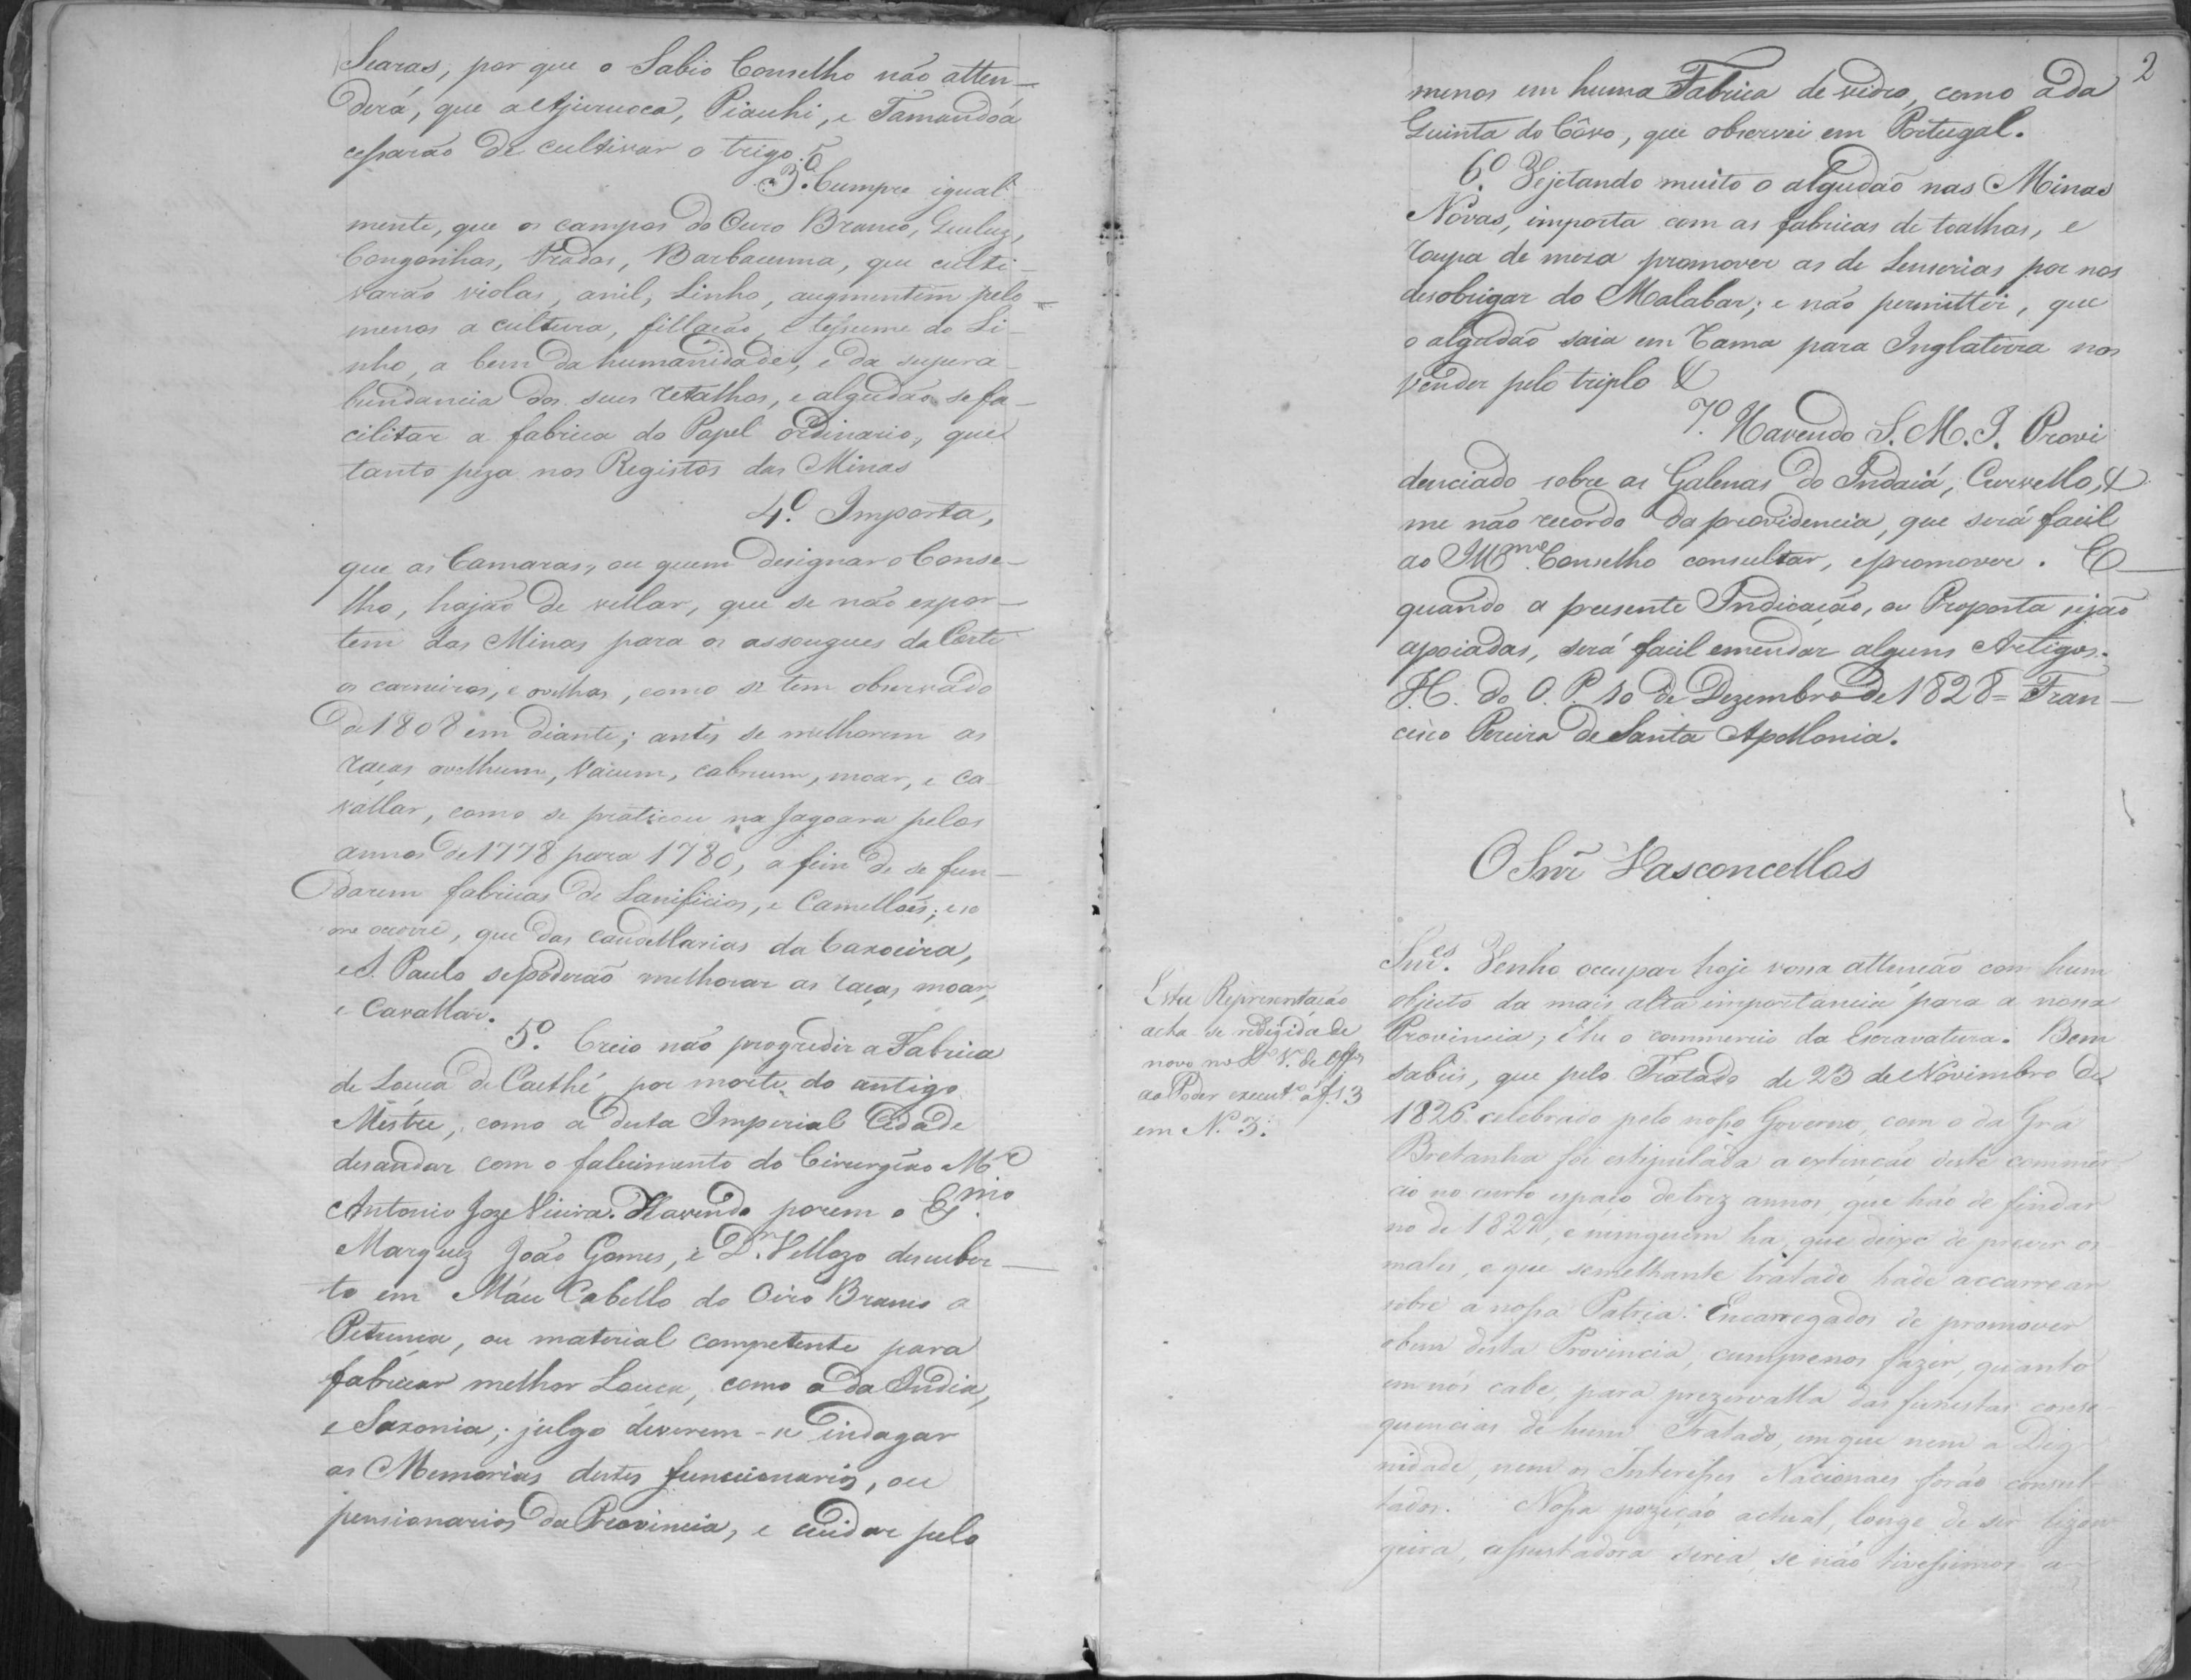 Searas, por que o Sabio Conselho não atten-
derá, que a Ajuruoca, Piauhi, e Tamandoá
cessarão de cultivar o trigo.
3.º Cumpre igual-
mente, que os campos do Ouro Branco, Queluz,
Congonhas, Prados, Barbacenna, que culti-
varão violas, anil, Linho, augmentem pelo
menos a cultura, fillação, e tessume do Li-
nho, a bem da humanidade, e da supera-
bundancia dos seus retalhos, e algudão se fa-
cilitar a fabrica do Papel ordinario, que
tanto peza nos Registos das Minas
4.º Importa,
que as Camaras, ou quem designar o Conse-
lho, hajão de vellar, que se não expor-
tem das Minas para os assougues da Corte
os carneiros, e ovelhas, como se tem observado
de 1808 em diante; antes se melhorem as
raças ovelhum, vacum, cabrum, moar, e ca-
vallar, como se praticou na Jagoara pelos
annos de 1778 para 1780, a fim de se fun-
darem fabricas de Lanificios, e Camellões; e
me occorre, que das caudellarias da Caxoeira,
e S. Paulo se poderão melhorar as raças moar,
e Cavallar.
5.º Creio não progredir a Fabrica
de Louça de Caethé, por morte do antigo
Mestre, como a desta Imperial Cidade
desandar com o falecimento do Cirurgião Mr
Antonio Joze Vieira. Havendo porem o Exmo
Marquez João Gomes, e Dr. Vellozo descuber-
to em Máu Cabello do Oiro Branco a
Petunca, ou material competente para
fabricar melhor Louça, como a da India,
e Saxonia; julgo deverem-se indagar
as Memorias destes funccionarios, ou
pensionarios da Provincia, e cuidar pelo
2
menos em huma Fabrica de vidro, como a da
Quinta do Côvo, que observei em Portugal.
6.º Vejetando muito o algudão nas Minas
Novas, importa com as fabricas de toalhas, e
roupa de meza promover as de Lenserias por nos
desobrigar do Malabar; e não permittir, que
o algudão saia em rama para Inglaterra nos
vender pelo triplo &
7.º Havendo S. M. I. Provi
denciado sobre as Galenas do Indaiá, Curvello, &
me não recordo da providencia, que será facil
ao Illmo Conselho consultar, e promover. E
quando a presente Indicação, ou Proposta sejão
apoiadas, será facil emendar alguns Artigos.
I. C. do O. P. 10 de Dezembro de 1828 = Fran-
cisco Pereira de Santa Apollonia.
O Snr Vasconcellos
Esta Representação
acha se redigida de
novo no L.º V. de Offos
ao Poder execut.º a f. 13
em N.º 3.
Snres. Venho occupar hoje vossa attenção com hum
objecto da mais alta importancia para a nossa
Provincia; é he o commercio da Escravatura. Bem
sabeis, que pelo Tratado de 23 de Novembro de
1826 celebrado pelo nosso Governo, com o da Grã
Bretanha foi estipulada a extinção deste commer-
cio no curto espaço de trez annos, que hão de findar
no de 1829, e ninguem ha, que deixe de prever os
males, e que semelhante tratado hade accarrear
sobre a nossa Patria. Encarregados de promover
o bem desta Provincia, cumprenos fazer, quanto
em nós cabe, para prezervalla das funestas conse-
quencias de hum Tratado, em que nem a Dig-
nidade, nem os Interesses Nacionaes forão consul-
tados. Nossa pozição actual, longe de ser lizon-
geira, assustadora seria, se não tivessimos a